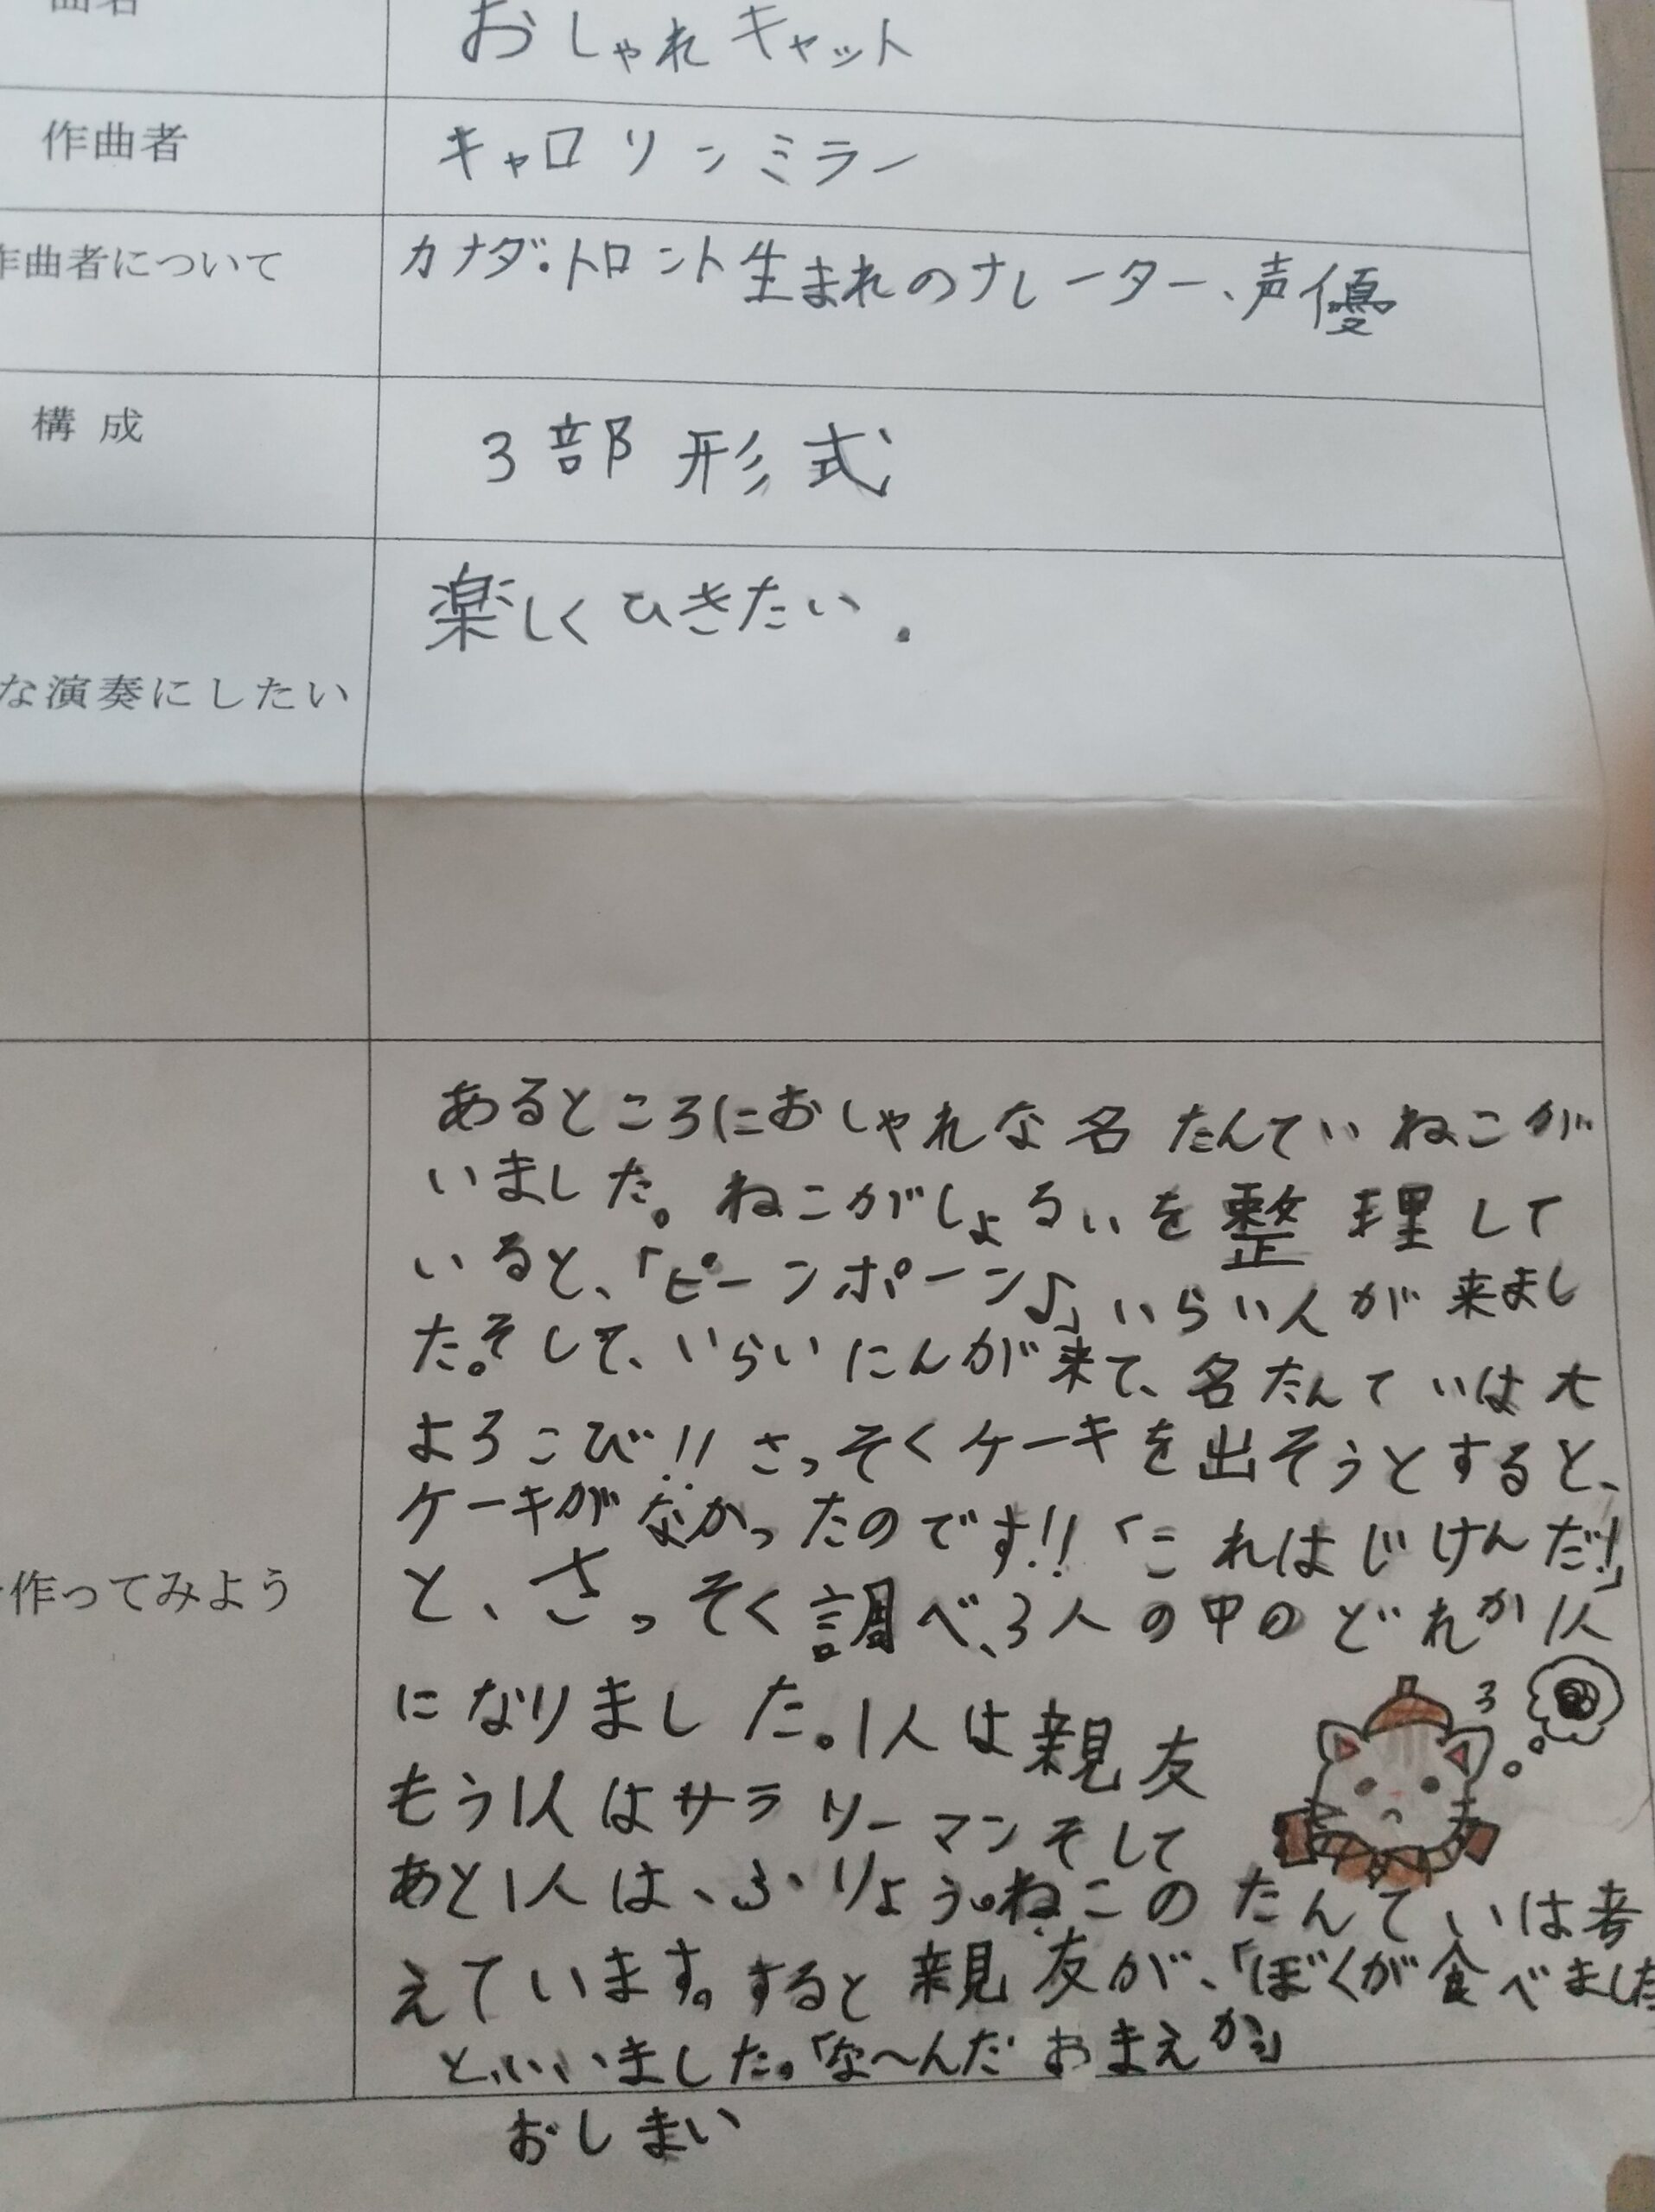 曲名
おしゃれキャット
作曲者
キャロリンミラー
作曲者について
カナダ・トロント生まれのナレーター、声優
構成
3部形式
な演奏にしたい
楽しくひきたい。
作ってみよう
あるところにおしゃれな名たんていねこが
いました。ねこがしょるいを整理して
いると、「ピーンポーン♪」いらい人が来まし
た。そして、いらいにんが来て、名たんていは大
よろこび!!さっそくケーキを出そうとすると、
ケーキがなかったのです!!「これはじけんだ!」
と、さっそく調べ、3人の中のどれか1人
になりました。1人は親友
もう1人はサラリーマンそして
あと1人は、ふりょう。ねこのたんていは考
えています。すると親友が、「ぼくが食べました
といいました。「な～んだおまえか」
おしまい